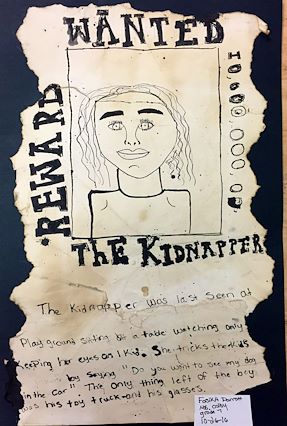 WANTED
REWARD
10,000,000.00
THE KIDNAPPER
The Kidnapper was last seen at
Play ground sitting at a table watching only
keeping her eyes on 1 kid. She tricks the kids
by saying "Do you want to see my dog
in the car" The only thing left of the boy
was his toy truck and his glasses.
10-26-16